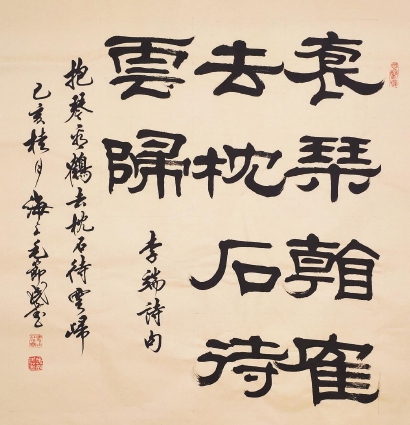 袌琴看隺
去枕石待
雲歸
李端詩句
抱琴看鶴去枕石待雲歸
己亥桂月海上毛節民書